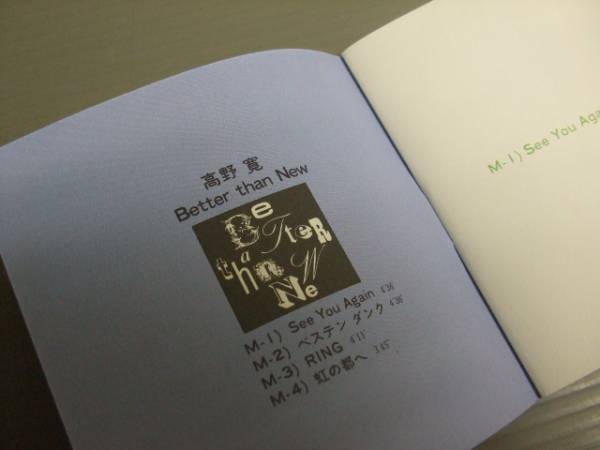 高野 寛
Better than New
Be
TTeR
thaN
NeW
M-1) See You Again 4'36"
M-2) ベステン ダンク 4'36"
M-3) RING 4'11"
M-4) 虹の都へ 3'45"
M-1) See You Aga